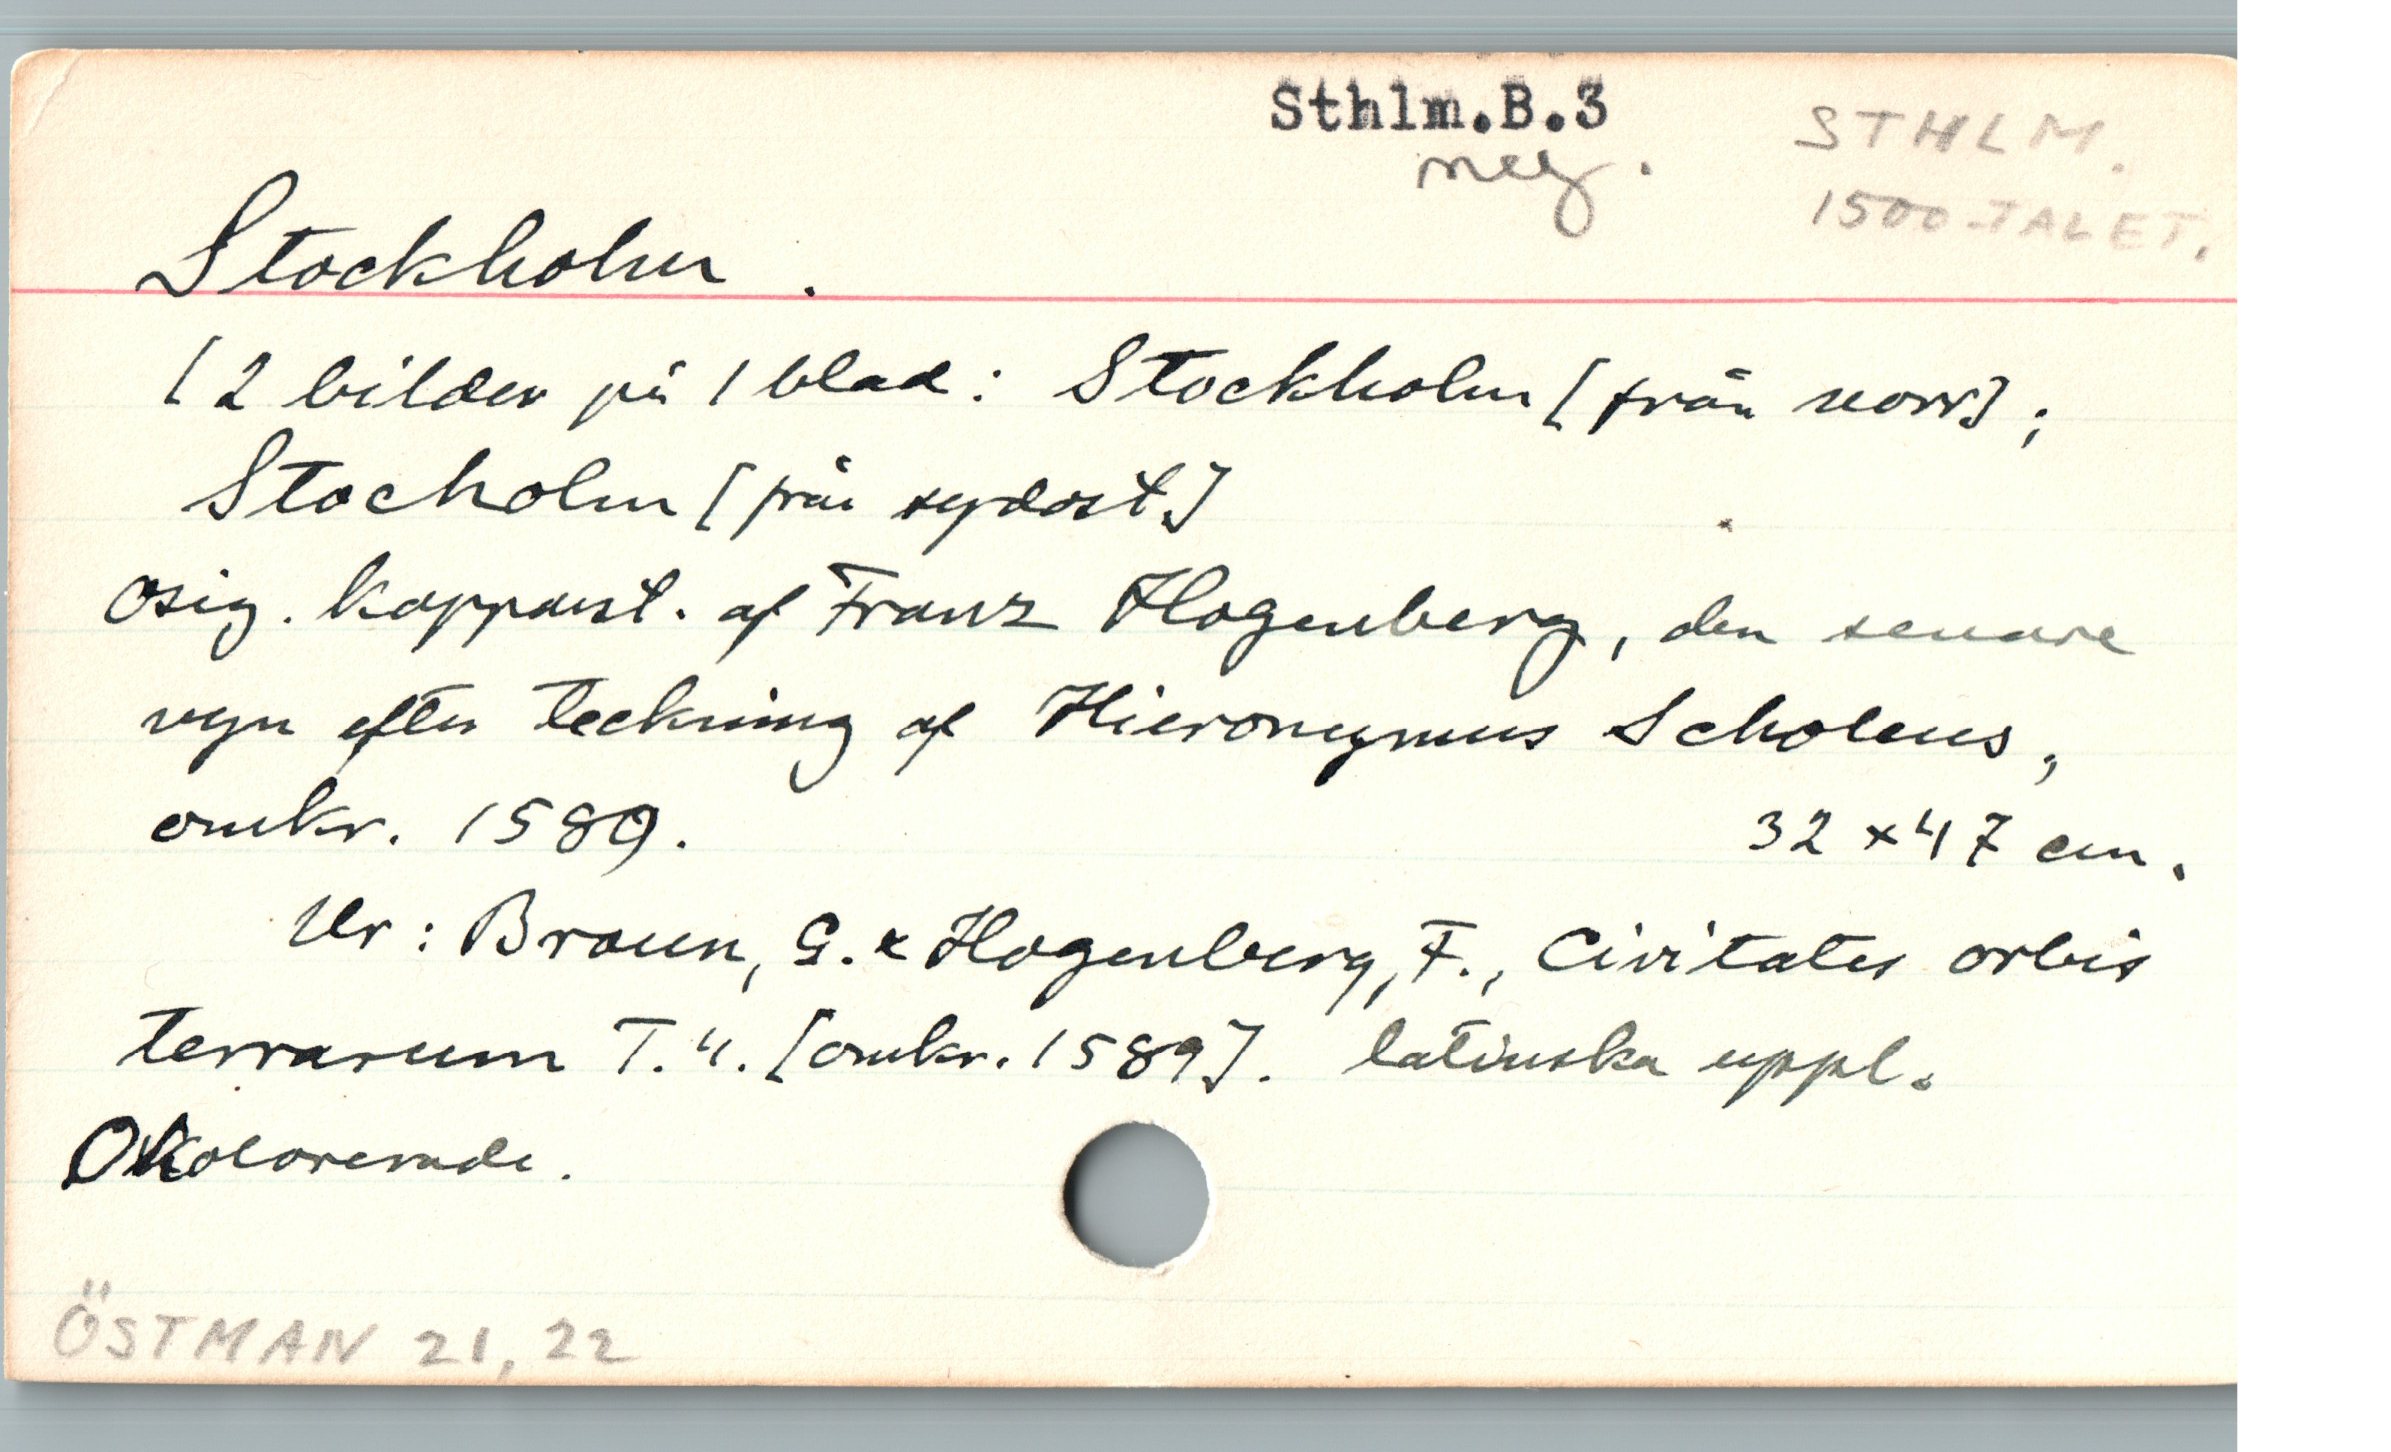 Sthlm.B.3
neg.
STHLM.
1500-TALET.
Stockholm.
[2 bilder på 1 blad: Stockholm [från norr];
Stocholm [från sydost]
Osig. kopparst. af Franz Hogenberg, den senare
vyn efter teckning af Hieronymus Scholeus,
omkr. 1589.
32 x 47 cm.
Ur: Braun, G. & Hogenberg, F., Civitates orbis
terrarum T. 4. [omkr. 1589]. latinska uppl.
Okolorerade.
ÖSTMAN 21, 22